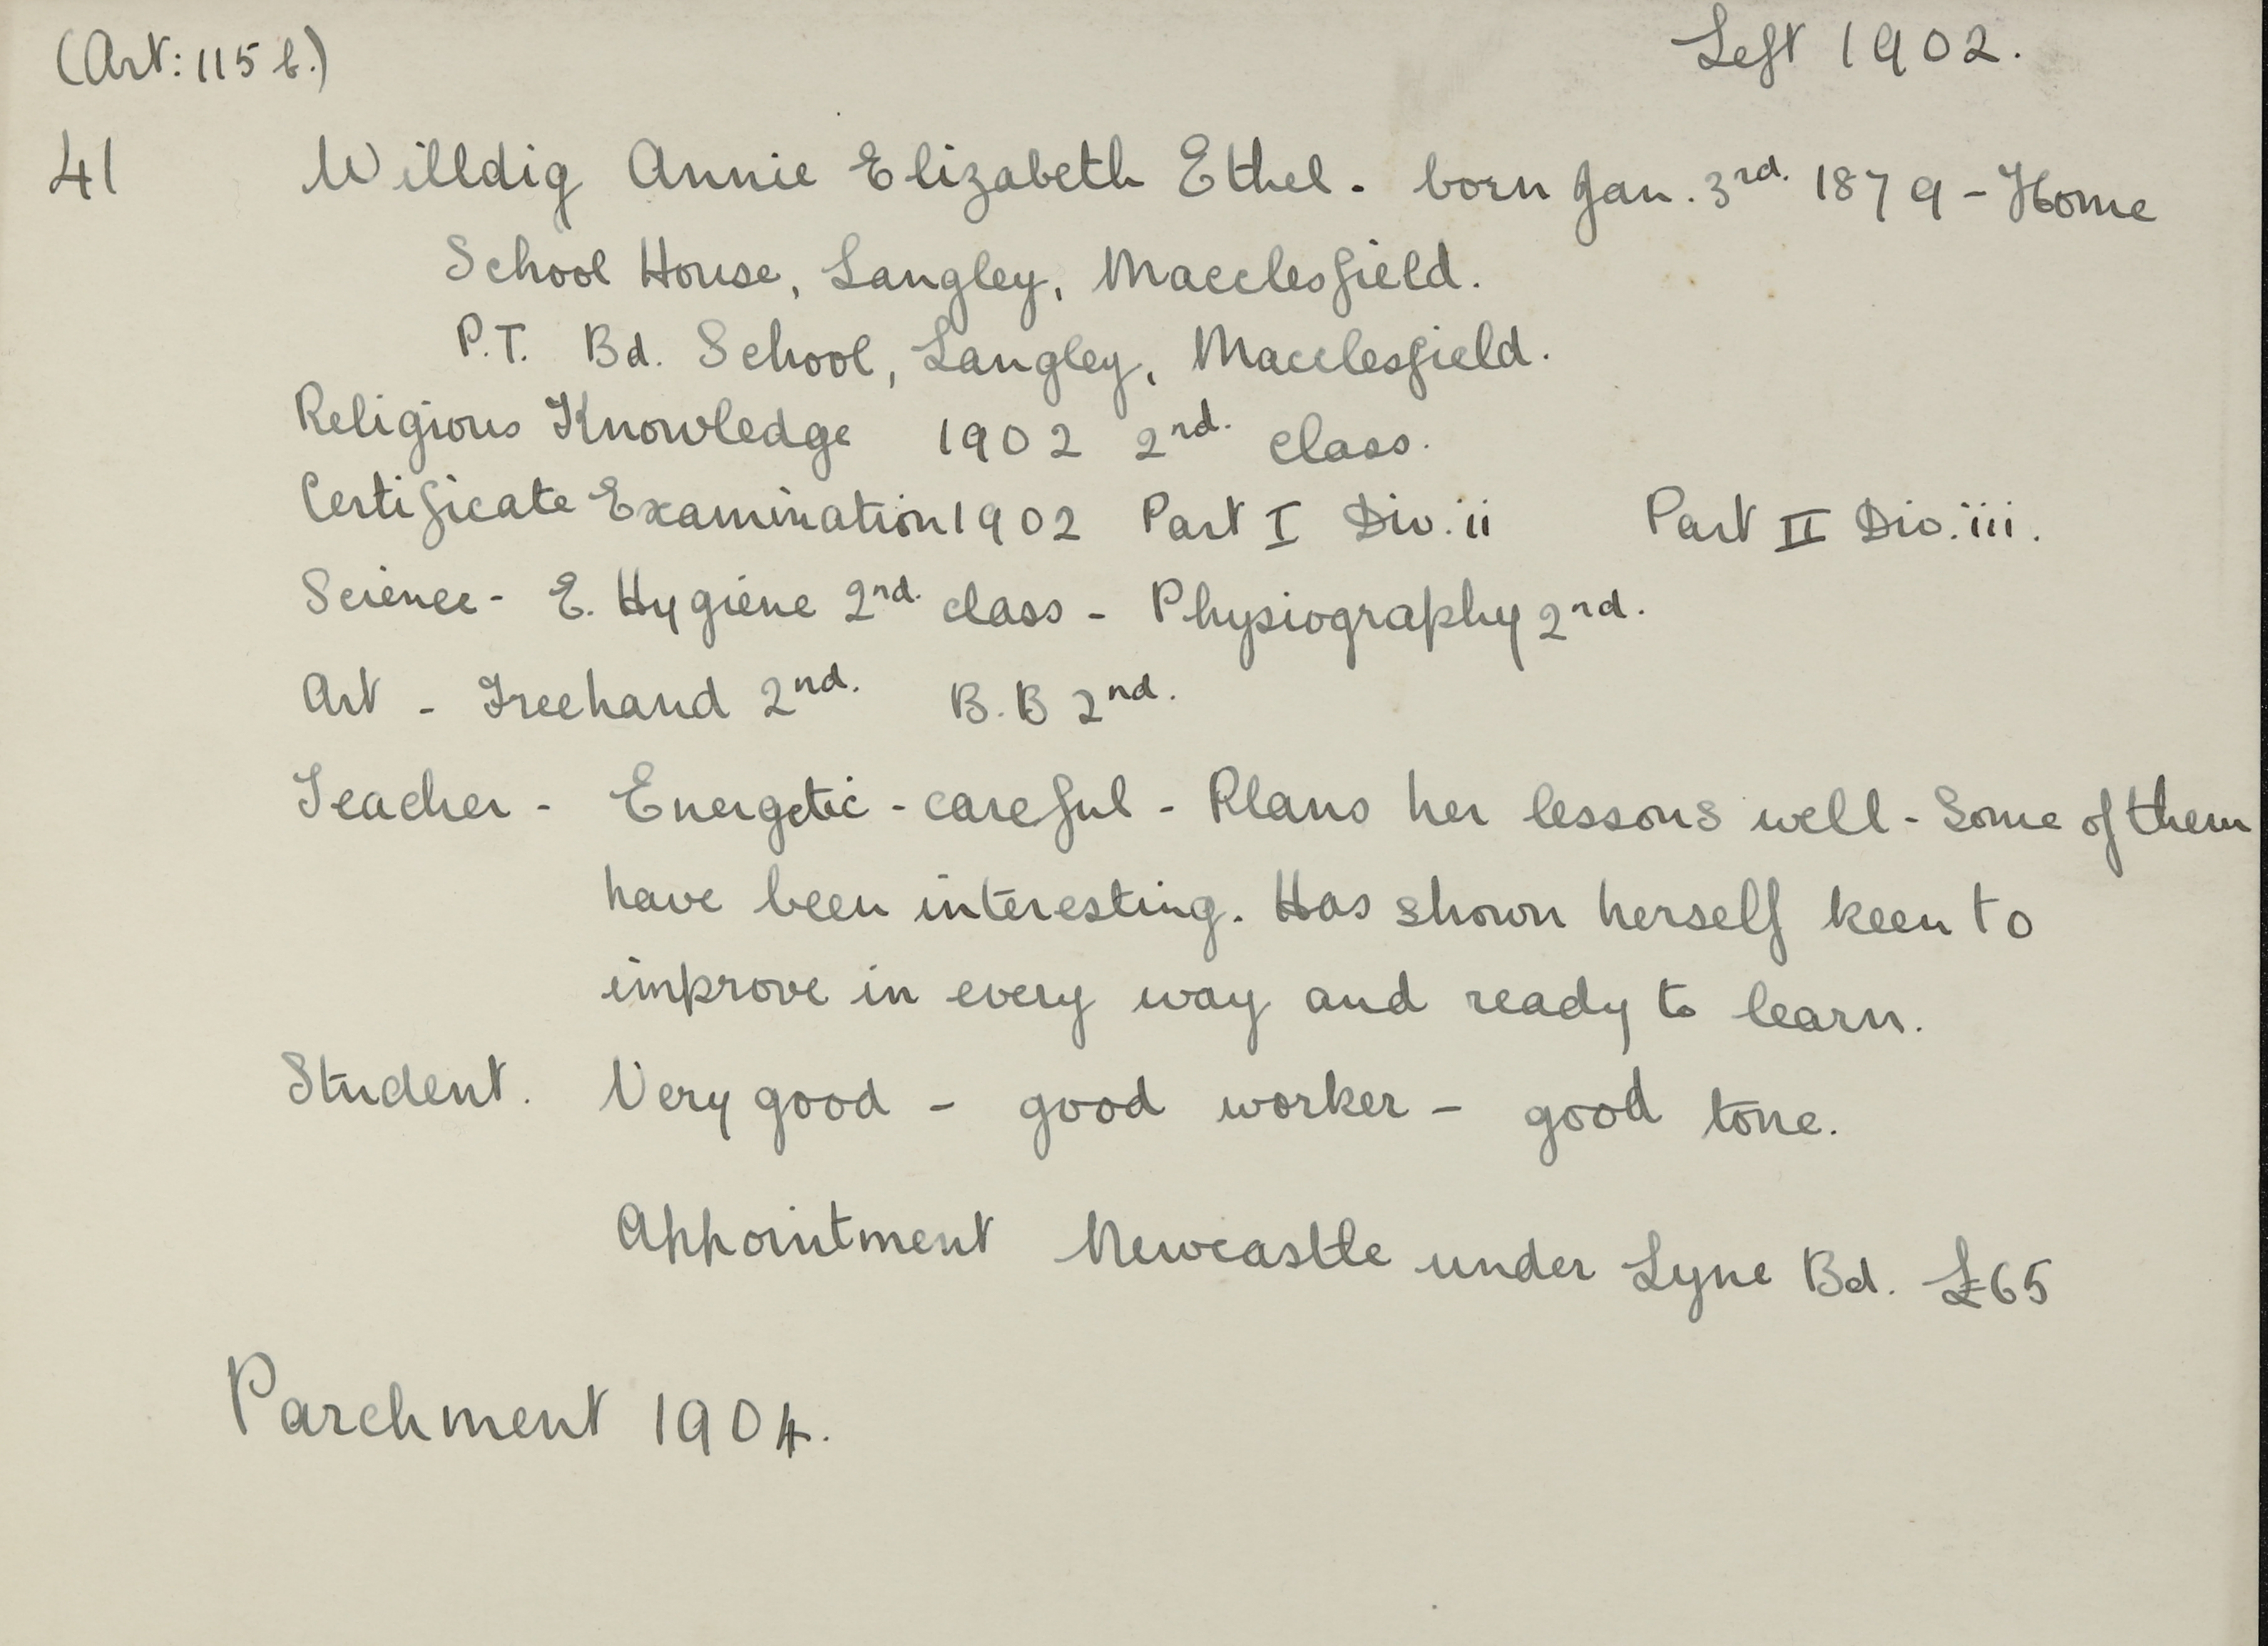 (Art: 115 b.)
Left 1902.
41 Willdig Annie Elizabeth Ethel. born Jan. 3rd. 1879 - Home
School House, Langley, Macclesfield.
P.T. Bd. School, Langley, Macclesfield.
Religious Knowledge 1902 2nd. class.
Certificate Examination 1902 Part I Div. ii Part II Div. iii.
Science - E. Hygiene 2nd. class - Physiography 2nd.
Art - Freehand 2nd. B.B 2nd.
Teacher - Energetic - careful - Plans her lessons well - Some of them
have been interesting. Has shown herself keen to
improve in every way and ready to learn.
Student. Very good - good worker - good tone.
Appointment Newcastle under Lyne Bd. £65
Parchment 1904.